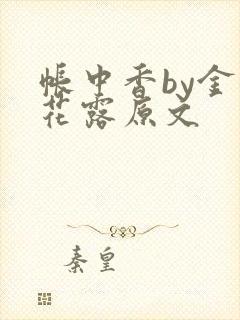 帐中香by金
花露原文
秦皇